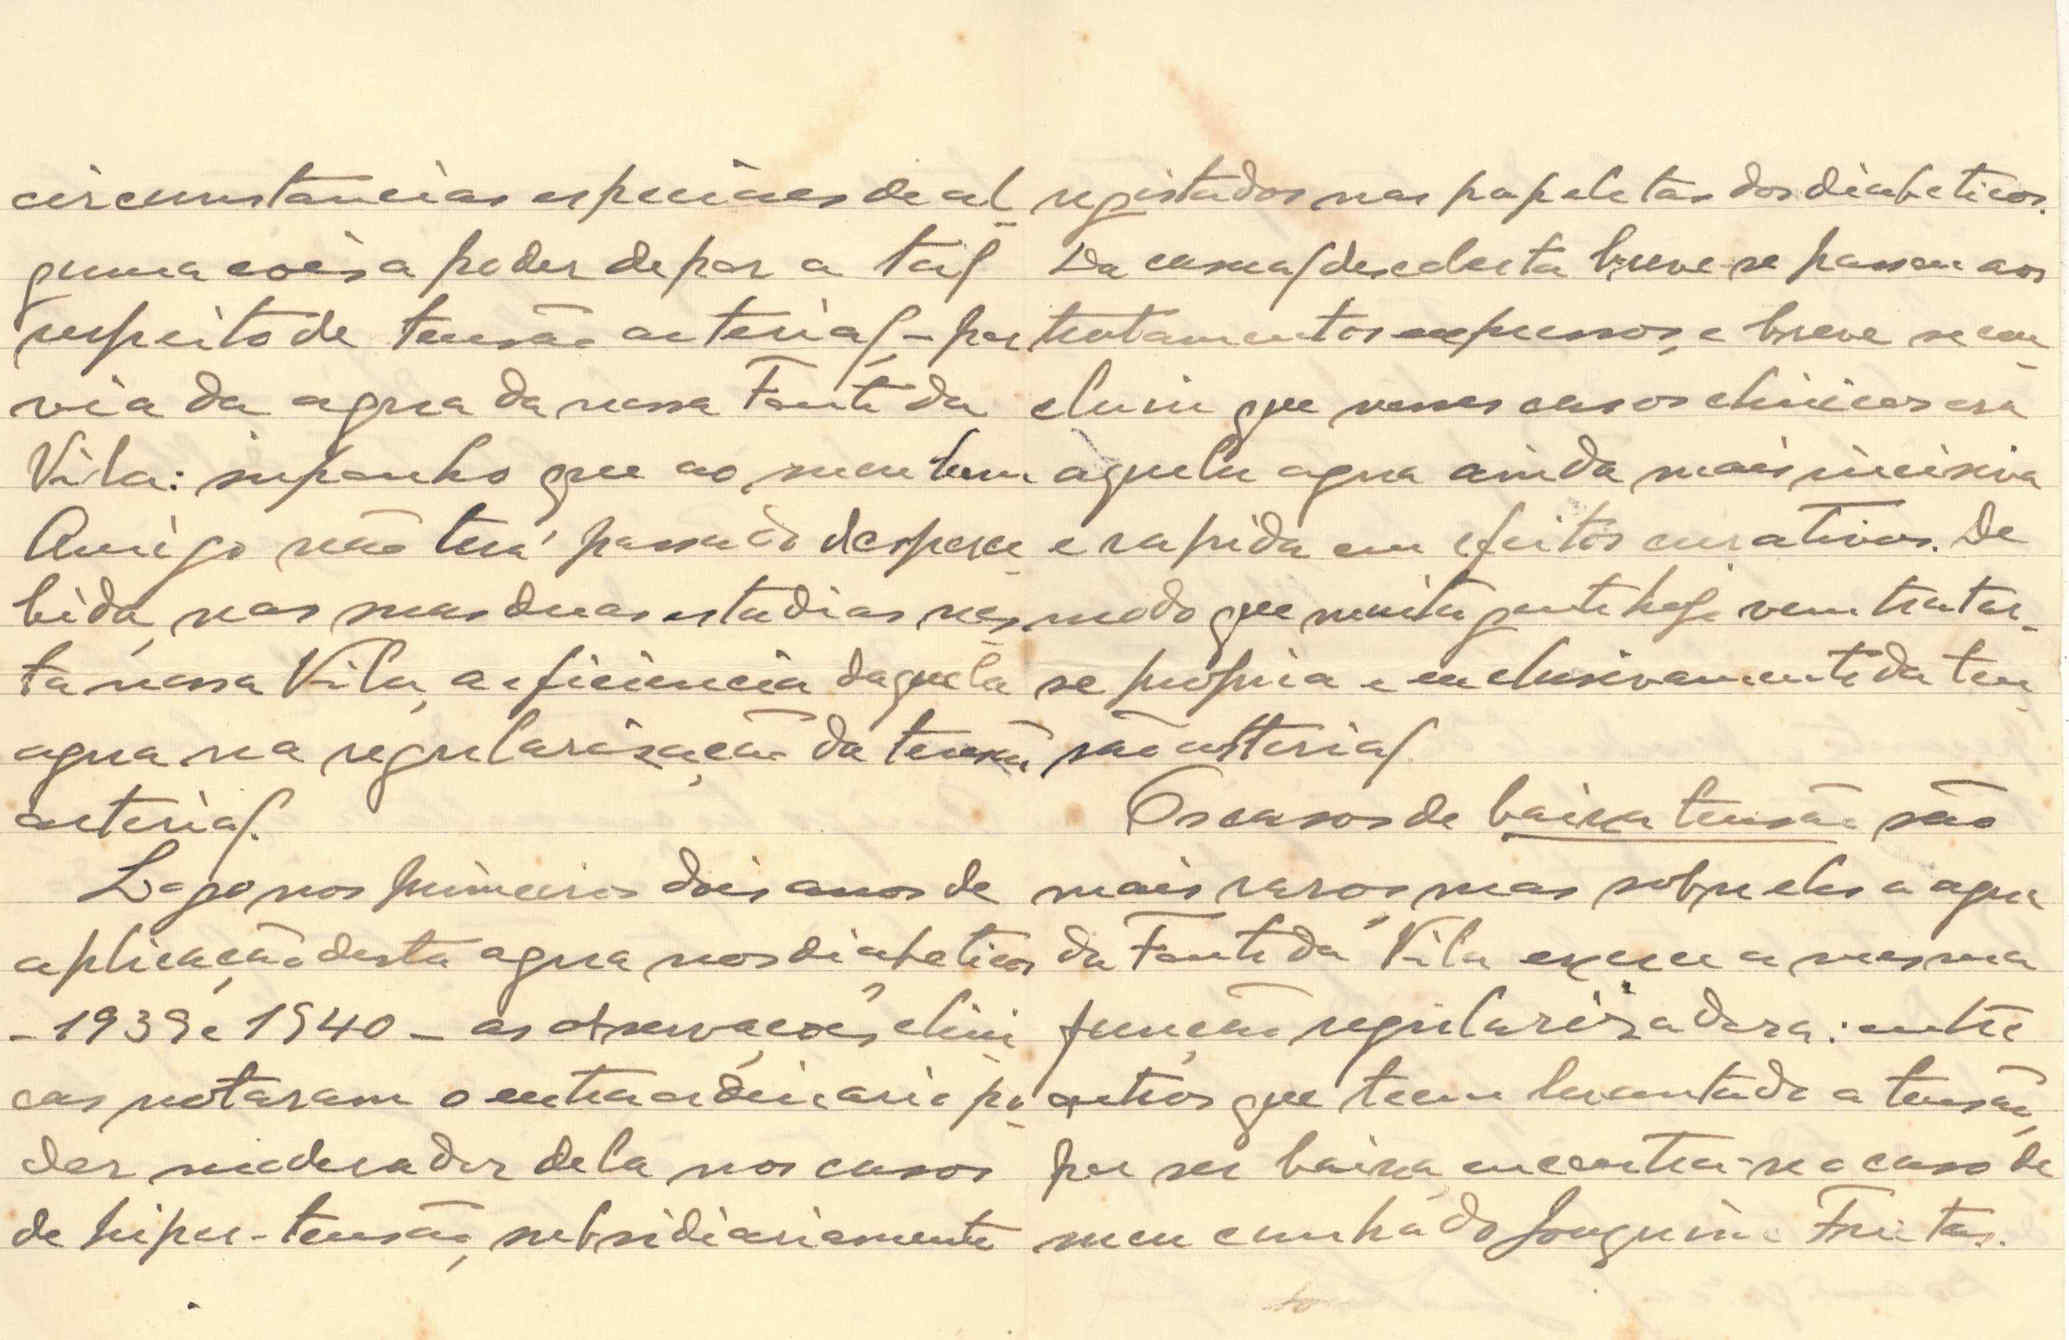 circunstancias especiaes de al-
guma coisa poder depor a tal
respeito de tensão arterial - por
via da agua da nossa Fonte da
Vila: suponho que ao meu bom
Amigo não terá passado desperce-
bida, nas suas duas estadias nes-
ta nossa Vila, a eficiencia daquela
agua na regularisação da tensão
arterial.
Logo nos primeiros dois anos de
aplicação desta agua nos diabeticos,
- 1939 e 1940 - as observações clini-
cas notaram o extraordinario po-
der moderador dela nos casos
de hiper-tensão, subsidiariamente
registados nas papeletas dos diabeticos.
Da casual descoberta breve se passou aos
tratamentos expressos, e breve se con-
cluiu que nesses casos clinicos era
aquela agua ainda mais incisiva
e rapida em efeitos curativos. De
modo que muita gente hoje vem tratar-
se propria e exclusivamente da ten-
são arterial.
Os casos de baixa tensão são
mais raros, mas sobre eles a agua
da Fonte da Vila exerce a mesma
função regularizadora: entre
outros que teem levantado a tensão,
por ser baixa, encontra-se o caso de
meu cunhado Joaquim Freitas.